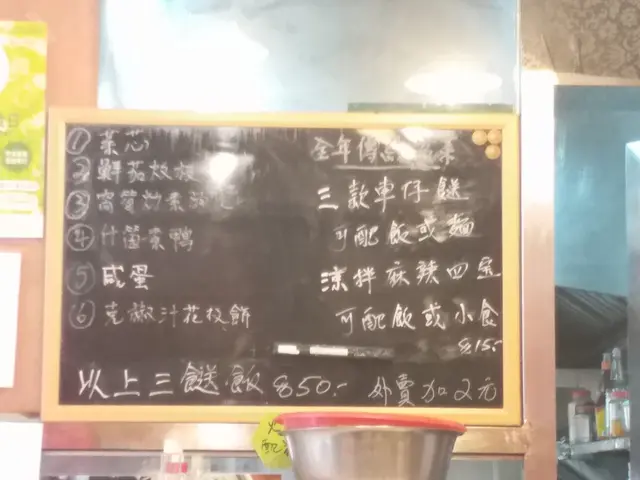 ① 菜芯
② 鮮茄炆枝
③ 宵 炒素
④ 什菌素鴨
⑤ 咸蛋
⑥ 克椒汁花枝餅
以上三餸飯 $50.-
全年傳
三款車仔餸
可配飯或麵
涼拌麻辣四
可配飯或小食
$15.-
外賣加2元
配